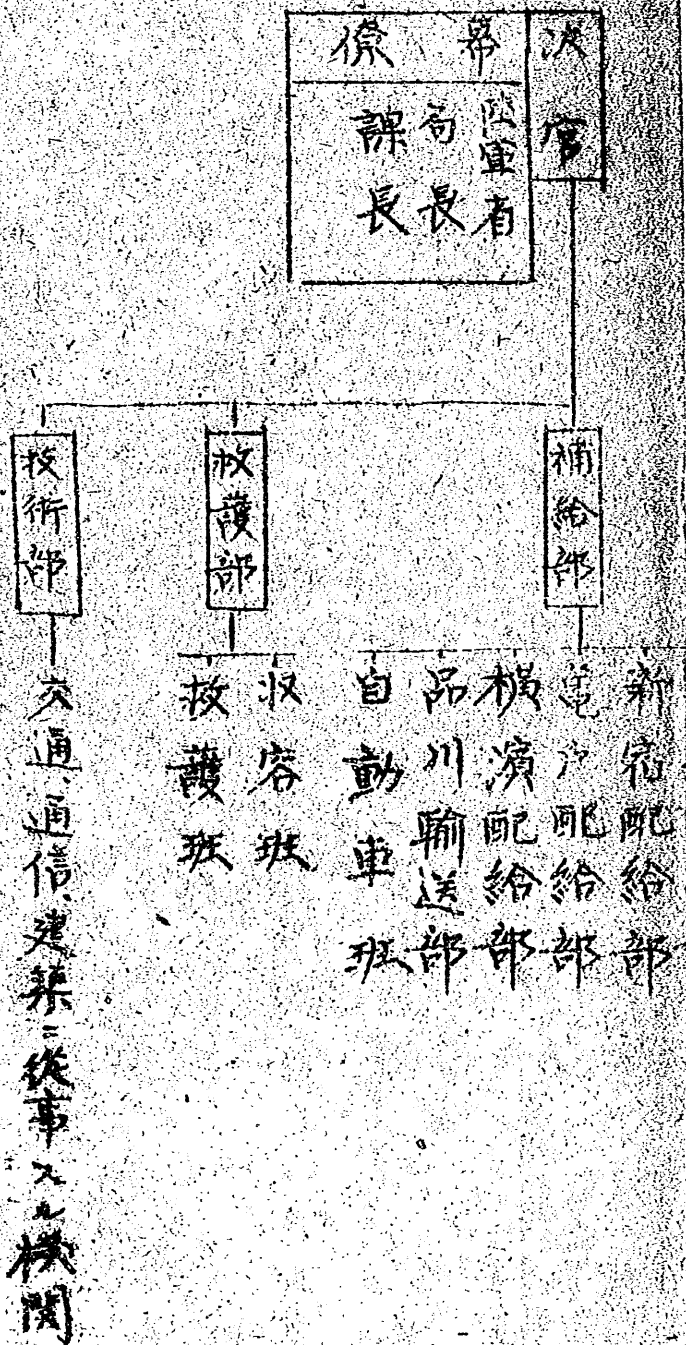 次官
幕僚
陸軍省
局長
課長
補給部
新宿配給部
亀戸配給部
横濱配給部
品川輸送部
自動車班
救護部
収容班
救護班
技術部
交通、通信、建築ニ従事スル機関